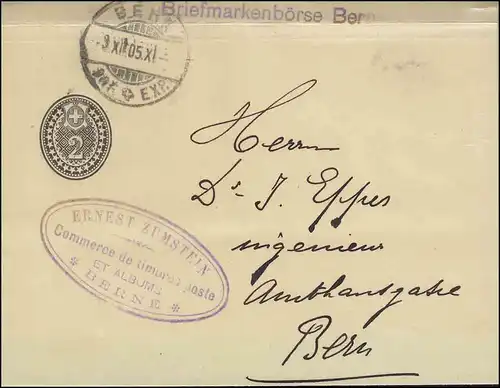 Briefmarkenbörse Bern
BERN
-9.XII.05.XI-
EXP.
2
ERNEST ZUMSTEIN
Commerce de timbres poste
ET ALBUMS
* BERNE *
Herrn
Dr J. Eppes
ingenieur
Amthausgasse
Bern